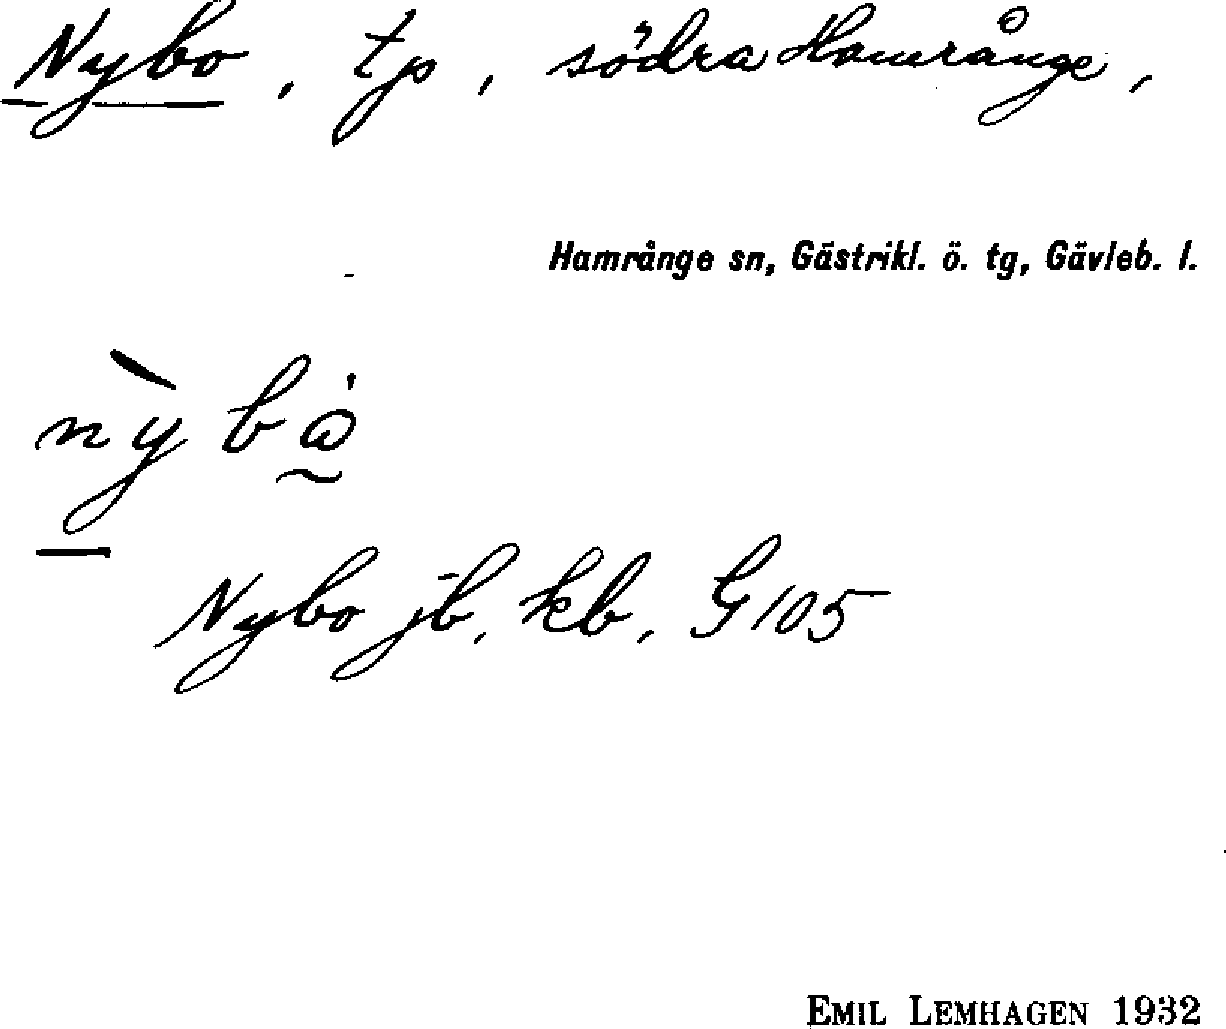 Nybo, tp, södra Hamrånge,
Hamrånge sn, Gästrikl. ö. tg, Gävleb. l.
Nybo jb, kb, G 105
EMIL LEMHAGEN 1932